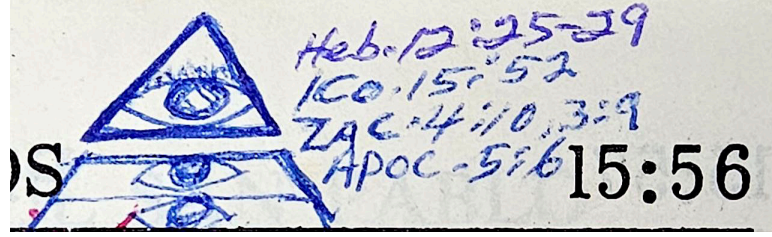 Heb. 12:25-29
1Co. 15:52
ZAC. 4:10, 3:9
APOC. 5:6
OS 15:56